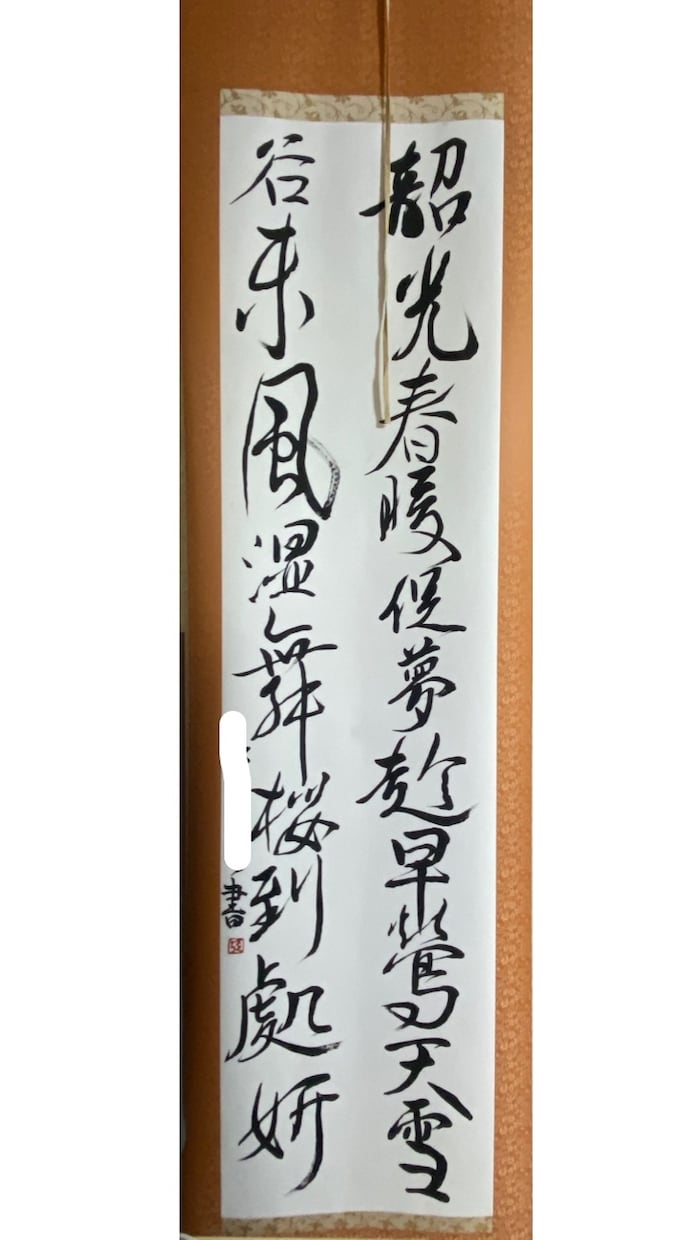 韶光春暖促夢趁早鶯天雪
谷東風温舞桜到處妍
書